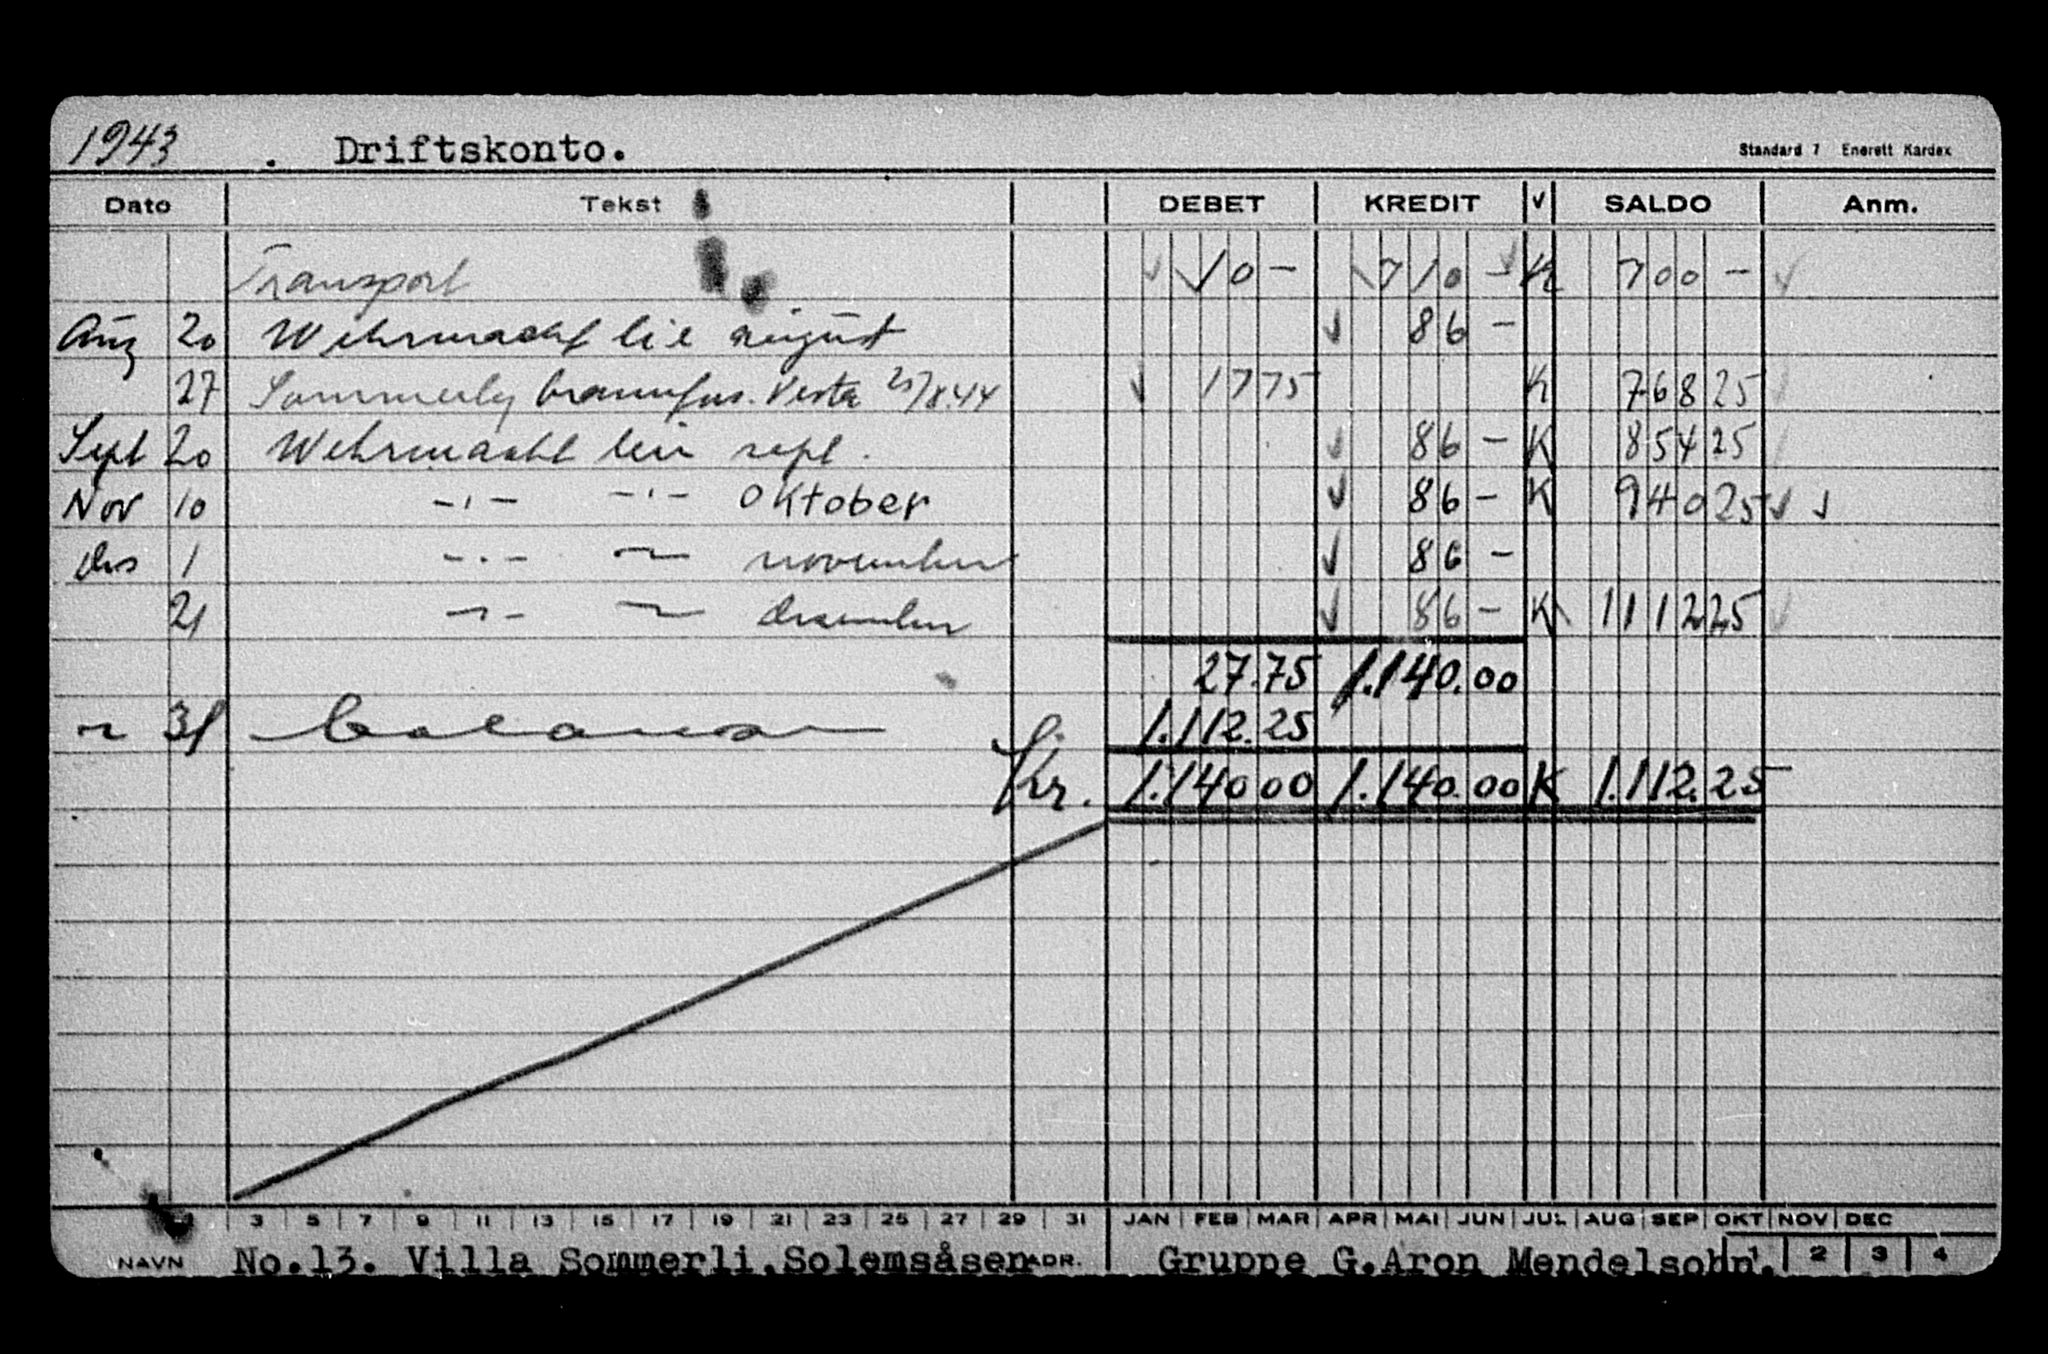 1943 . Driftskonto.
Standard 7 Enerett Kardex
Dato Tekst DEBET KREDIT √ SALDO Anm.
Transport 10 - 710 - K 700 -
Aug 20 Wehrmacht leie august 86 -
27 Sommerly brannfors. Vesta 25/8.44 1775 K 76825
Sept 20 Wehrmacht leie sept. 86 - K 85425
Nov 10 -"- -"- Oktober 86 - K 94025
des 1 -"- -"- november 86 -
21 -"- -"- desember 86 - K 111225
27.75 1.140.00
" 31 balanse 1.112.25
Kr. 1.14000 1.140.00 K 1.112.25
3 5 7 9 11 13 15 17 19 21 23 25 27 29 31 JAN FEB MAR APR MAI JUN JUL AUG SEP OKT NOV DEC
NAVN No.13. Villa Sommerli,Solemsåsen ADR. Gruppe G.Aron Mendelsohn. 1 2 3 4